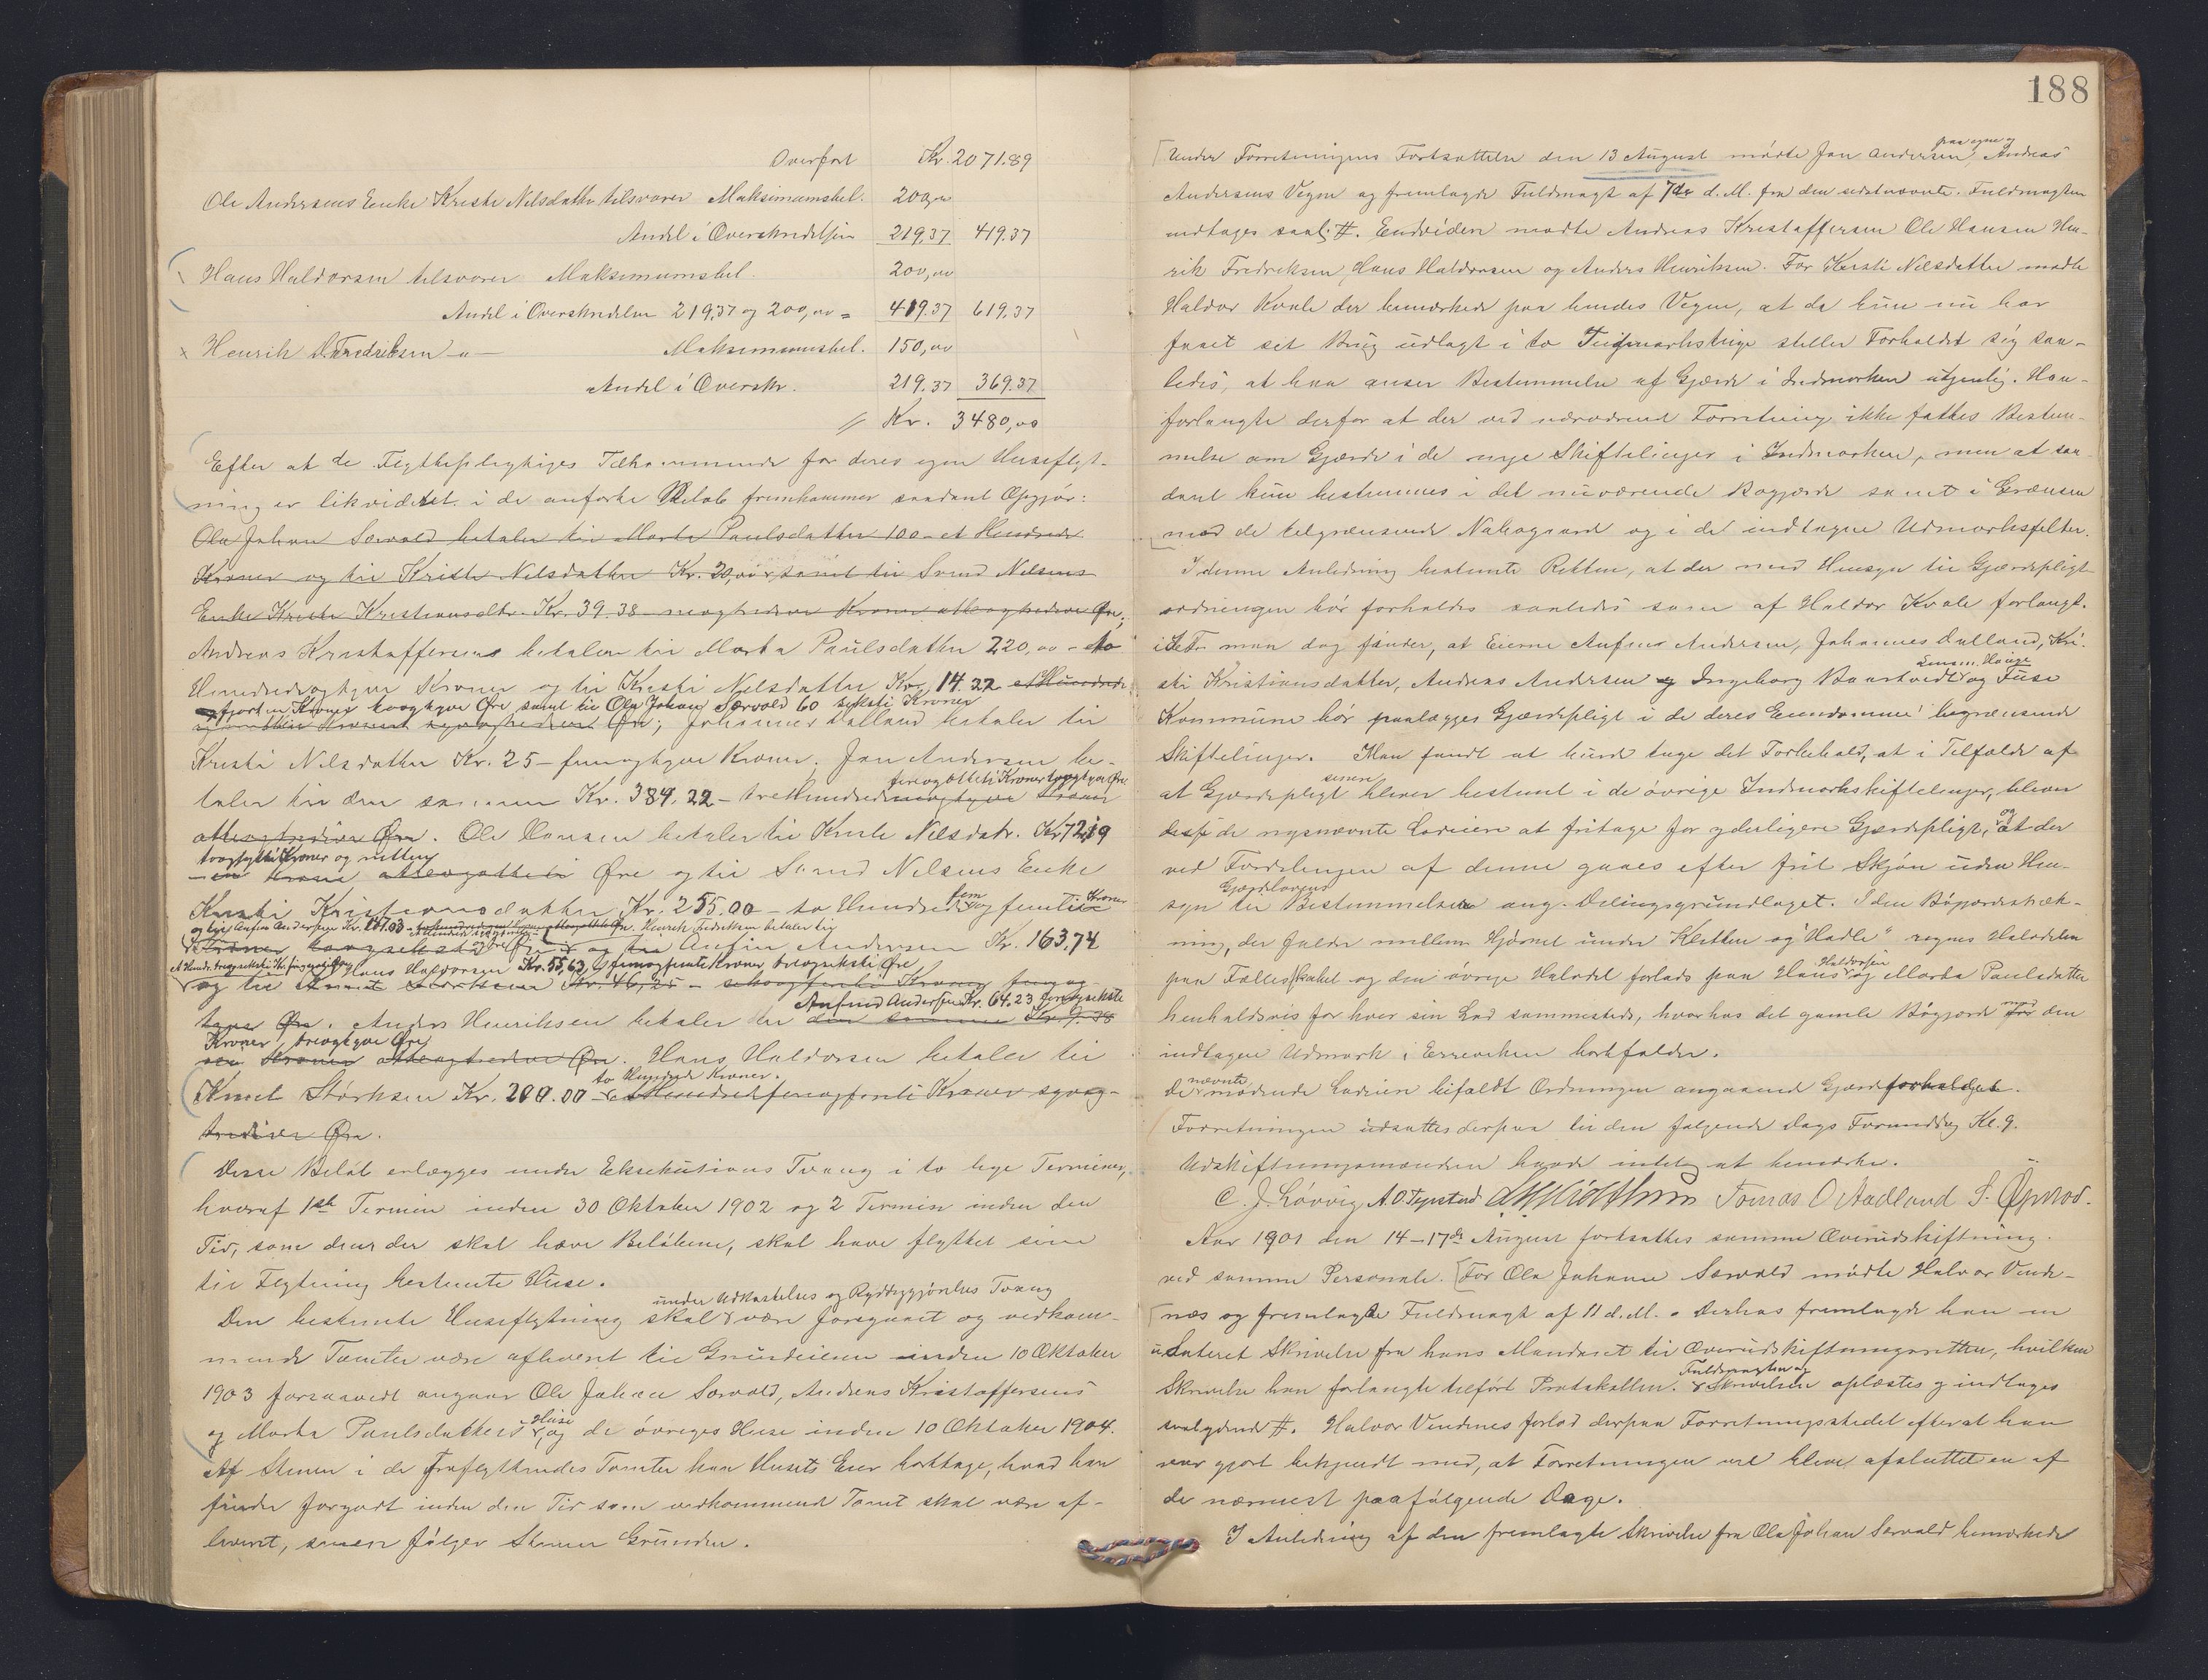 Overført Kr. 2071.89
Ole Andersens Enke Kristi Nilsdatter tilsvarer Maksimumsbel. 200,00
Andel i Overskridelsen 219,37 419.37
Hans Haldorsen tilsvarer Maksimumsbel. 200,00
Andel i Overskridelsen 219,37 og 200,00 = 419.37 619,37
Henrik Fredriksen -"- Maksimumsbel. 150,00
Andel i Overskr. 219,37 369.37
Kr. 3480,00
Efter at de Flyttepligtiges Tilkommende for deres egen Huseflyt-
ning er likvideret i de anførte Beløb fremkommer saadant Opgjør:
Ola Johan Sørvold betaler til Marta Paulsdatter 100 - et Hundrede
Kroner og til Kristi Nilsdatter Kr. 20,00 samt til Svend Nilsens
Enke Kristi Kristiansdtr. Kr. 39.38 - niogtredive Kroner otteogtredive Øre;
Andreas Kristoffersens betaler til Marta Paulsdatter 220,00 - to
Hundredeogtyve Kroner og til Kristi Nilsdatter Kr. 14.22 et Hundrede
fjorten Kroner toogtyve Øre samt til Ola Johan Sørvold 60 seksti Kroner
Øre; Johannes Dalland betaler til
Kristi Nilsdatter Kr. 25 - femogtyve Kroner. Jan Andersen be-
fireogotteti Kroner toogtyve Øre
taler til den samme Kr. 384,22 - tre Hundrede niogtyve Kroner
otteogtredive Øre. Ole Hansen betaler til Kristi Nilsdatr. Kr. 72,19
toogsytti Kroner og nitten
en Krone otteogotteti Øre og til Svend Nilsens Enke
Kristi Kristiansdatter Kr. 255.00 - to Hundrede fem og femti Kroner
og til Anfin Andersen Kr. 167.03 Henrik Fredriksen betaler til
Kroner toogseksti Øre og til Anfin Andersen Kr. 163,74
Hans Haldorsen Kr. 55,63 femogfemti Kroner treogseksti Øre
og til Knut Størksen Kr. 46,25 - seksogfirti Kroner femog-
Anfind Andersen Kr. 64.23 fireogseksti
tyve Øre. Anders Henriksen betaler til den samme Kr. 9.38
Kroner, treogtyve Øre
ni Kroner otteogtredive Øre. Hans Haldorsen betaler til
to Hundrede Kroner.
Knut Størksen Kr. 200.00 - et Hundredefemogfemti Kroner syvog-
tredive Øre.
Disse Beløb erlægges under Eksekutions Tvang i to lige Terminer,
hvoraf 1ste Termin inden 30 Oktober 1902 og 2 Termin inden den
Tid, som den der skal hæve Beløbene, skal have flyttet sine
til Flytning bestemte Huse.
under Udkastelses og Ryddiggjørelses Tvang
Den bestemte Huseflytning skal være foregaaet og vedkom-
mende Tomter være afleveret til Grundeieren inden 10 Oktober
1903 forsaavidt angaar Ole Johan Sørvold, Andreas Kristoffersens
og Marta Paulsdatters Huse og de øvriges Huse inden 10 Oktober 1904.
Af Stenen i de fraflyttendes Tomter kan Husets Eier borttage, hvad han
finder forgodt inden den Tid som vedkommende Tomt skal være af-
leveret, senere følger Stenen Grunden.
188
paa egne og
Under Forretningens Fortsættelse den 13 August mødte Jan Andersen, Andreas
Andersens Vegne og fremlagde Fuldmagt af 7de d. M. fra den sidstnævnte. Fuldmagten
indtages saal. #. Endvidere mødte Andreas Kristoffersen Ole Hansen Hen-
rik Fredriksen, Hans Haldorsen og Anders Henriksen. For Kristi Nilsdatter mødte
Haldor Kvale der bemærkede paa hendes Vegne, at da hun nu har
faaet sit Brug udlagt i to Teigmarkstrige stiller Forholdet sig saa-
ledes, at han anser Bestemmelse af Gjærde i Indmarken utjenlig. Han
forlangte derfor at der ved nærværende Forretning ikke fattes Bestem-
melse om Gjærde i de nye Skiftelinjer i Indmarken, men at saa-
dant kun bestemmes i det nuværende Bøgjærde samt i Grænsen
mod de tilgrænsende Nabogaard og i de indtagne Udmarksfelter.
I denne Anledning bestemte Retten, at der med Hensyn til Gjærdepligt-
ordningen bør forholdes saaledes som af Haldor Kvale forlangt.
idet man dog finder, at Eierne Anfind Andersen, Johannes Dalland, Kri-
Lensm. Hauge
sti Kristiansdatter, Andreas Andersen og Ingeborg Baartvedt og Fuse
Kommune bør paalægges Gjærdepligt i de deres Eiendomme begrænsende
Skiftelinjer. Man fandt at burde tage det Forbehold, at i Tilfælde af
senere
at Gjærdepligt bliver bestemt i de øvrige Indmarkskiftelinjer, bliver
disse de nysnævnte Lodeiere at fritage for yderligere Gjærdepligt, og at der
ved Fordelingen af denne gaaes efter frit Skjøn uden Hen-
Gjærdelovens
syn til Bestemmelser ang. Delingsgrundlaget. I den Bøgjærdestræk-
ning, der falder mellem Hjørnet under Kletten og "Hadle" regnes Halvdelen
Haldorsen
paa Fællesskabet og den øvrige Halvdel forlods paa Hans og Marta Paulsdatter
henholdsvis for hver sin Lod sammesteds, hvorhos det gamle Bøgjærde mod den
indtagne Udmark i Erreviken bortfalder.
nævnte
De mødende Lodeiere bifaldt Ordningen angaaende Gjærdeforholdet.
Forretningen udsattes derpaa til den følgende Dags Formiddag Kl. 9.
Udskiftningsmændene havde intet at bemærke.
C. J. Løvvig A. O. Teigstad Tomas O Aadland S. Øpstad.
Aar 1901 den 14-17de August fortsattes samme Overudskiftning
ved samme Personale. For Ola Johan Sørvold mødte Halvor Vinde-
næs og fremlagde Fuldmagt af 11 d. M. Derhos fremlagde han en
udateret Skrivelse fra hans Mandant til Overudskiftningsretten, hvilken
Fuldmagten og
Skrivelse han forlangte tilført Protokollen. Skrivelsen oplæstes og indtages
saalydende #. Halvor Vindenes forlod derpaa Forretningsstedet efterat han
var gjort bekjendt med, at Forretningen vil blive afsluttet en af
de nærmest paafølgende Dage.
I Anledning af den fremlagte Skrivelse fra Ola Johan Sørvold bemærkede